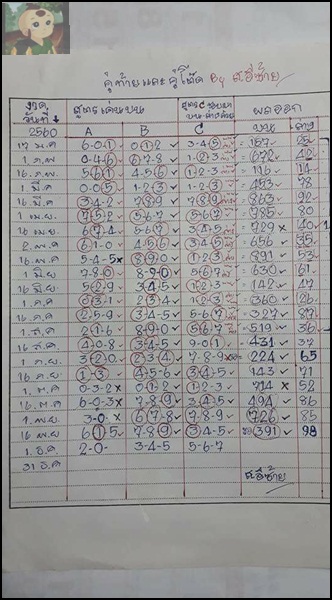 คู่ท้ายและคู่โต๊ด By ส.อีซ้าย
งวด วันที่ 2560 สูตรเด่นบน สูตร C ผลออก
A B C บน ล่าง
17 ม.ค 6-0-1 0-1-2 3-4-5 = 157 25
1 ก.พ 0-4-6 6-7-8 1-2-3 = 672 42
16 ก.พ 5-6-1 4-5-6 1-2-3 = 116 14
1 มี.ค 0-0-5 1-2-3 1-2-3 = 453 78
16 มี.ค 3-4-2 7-8-9 7-8-9 = 863 92
1 เม.ย 7-5-2 5-6-7 5-6-7 = 785 80
16 เม.ย 6-7-4 5-6-7 3-4-5 = 729 40
2 พ.ค 6-1-0 4-5-6 3-4-5 = 656 35
16 พ.ค 5-4-5 8-9-0 1-2-3 = 891 53
1 มิ.ย 7-8-0 8-9-0 5-6-7 = 630 61
16 มิ.ย 5-2-9 3-4-5 1-2-3 = 142 47
1 ก.ค 0-3-1 2-3-4 1-2-3 = 360 26
16 ก.ค 2-5-9 3-4-5 5-6-7 = 327 87
1 ส.ค 2-1-6 8-9-0 5-6-7 = 519 36
16 ส.ค 4-0-8 3-4-5 9-0-1 = 431 37
1 ก.ย 3-2-0 2-3-4 7-8-9 = 224 65
16 ก.ย 1-3-3 4-5-6 3-4-5 = 143 71
1 ต.ค 0-3-2 0-1-2 1-2-3 = 714 52
16 ต.ค 6-0-3 7-8-9 3-4-5 = 494 86
1 พ.ย 3-0- 6-7-8 7-8-9 = 726 85
16 พ.ย 6-1-5 7-8-9 3-4-5 391 98
1 ธ.ค 2-0- 3-4-5 5-6-7
31 ธ.ค
ส.อีซ้าย